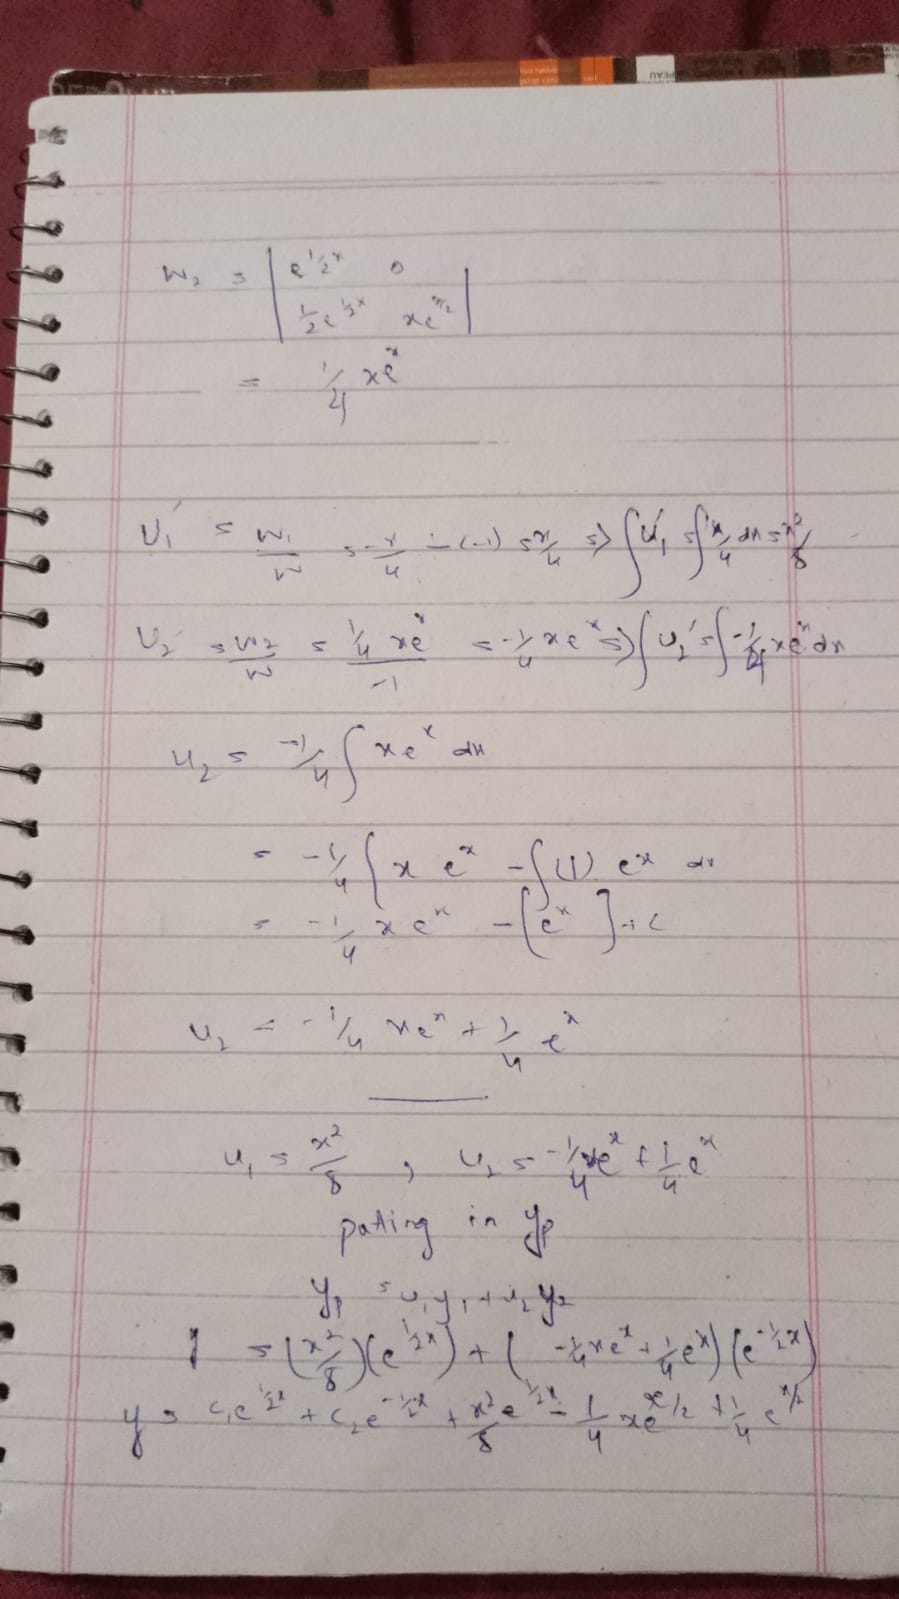 W₂ = | e^{1/2 x}  0 |
| 1/2 e^{1/2 x}  xe^{x/2} |
= 1/4 xe^x
U₁' = W₁/W = -x/4 ÷ (-1) = x/4 => ∫U₁' = ∫x/4 dx = x²/8
U₂' = W₂/W = (1/4 xe^x)/(-1) = -1/4 xe^x => ∫U₂' = ∫-1/4 xe^x dx
u₂ = -1/4 ∫ xe^x dx
= -1/4 ∫ x e^x - ∫(1) e^x dx
= -1/4 x e^x - [e^x] + c
u₂ = -1/4 xe^x + 1/4 e^x
u₁ = x²/8 , u₂ = -1/4 xe^x + 1/4 e^x
putting in yp
yp = u₁y₁ + u₂y₂
= (x²/8)(e^{1/2 x}) + (-1/4 xe^x + 1/4 e^x)(e^{-1/2 x})
y = c₁e^{1/2 x} + c₂e^{-1/2 x} + x²/8 e^{1/2 x} - 1/4 xe^{x/2} + 1/4 e^{x/2}